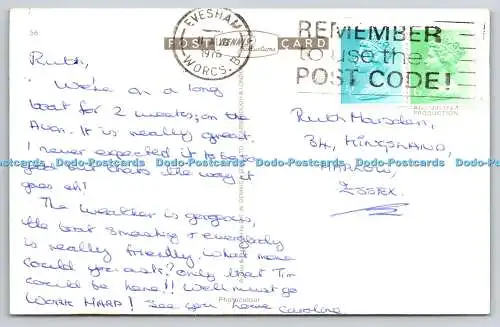 56
POST CARD
DENNIS
Productions
EVESHAM
1976
WORCS. B
REMEMBER
to use the
POST CODE!
PRODUCTION
Ruth,
We're on a long
boat for 2 weeks, on the
Avon. It is really great.
I never expected it to be
good but that's the way it
goes eh!
The weather is gorgeous,
the boat smashing & everybody
is really friendly. What more
could you ask? Only that Tim
could be here!! Well must go
WORK HARD! See you home Caroline
Ruth Marsden,
HARLOW,
ESSEX.
Photocolour
Dodo-Postcards Dodo-Postcards Dodo-Postcards Dodo-Postcards Dodo-Postcards